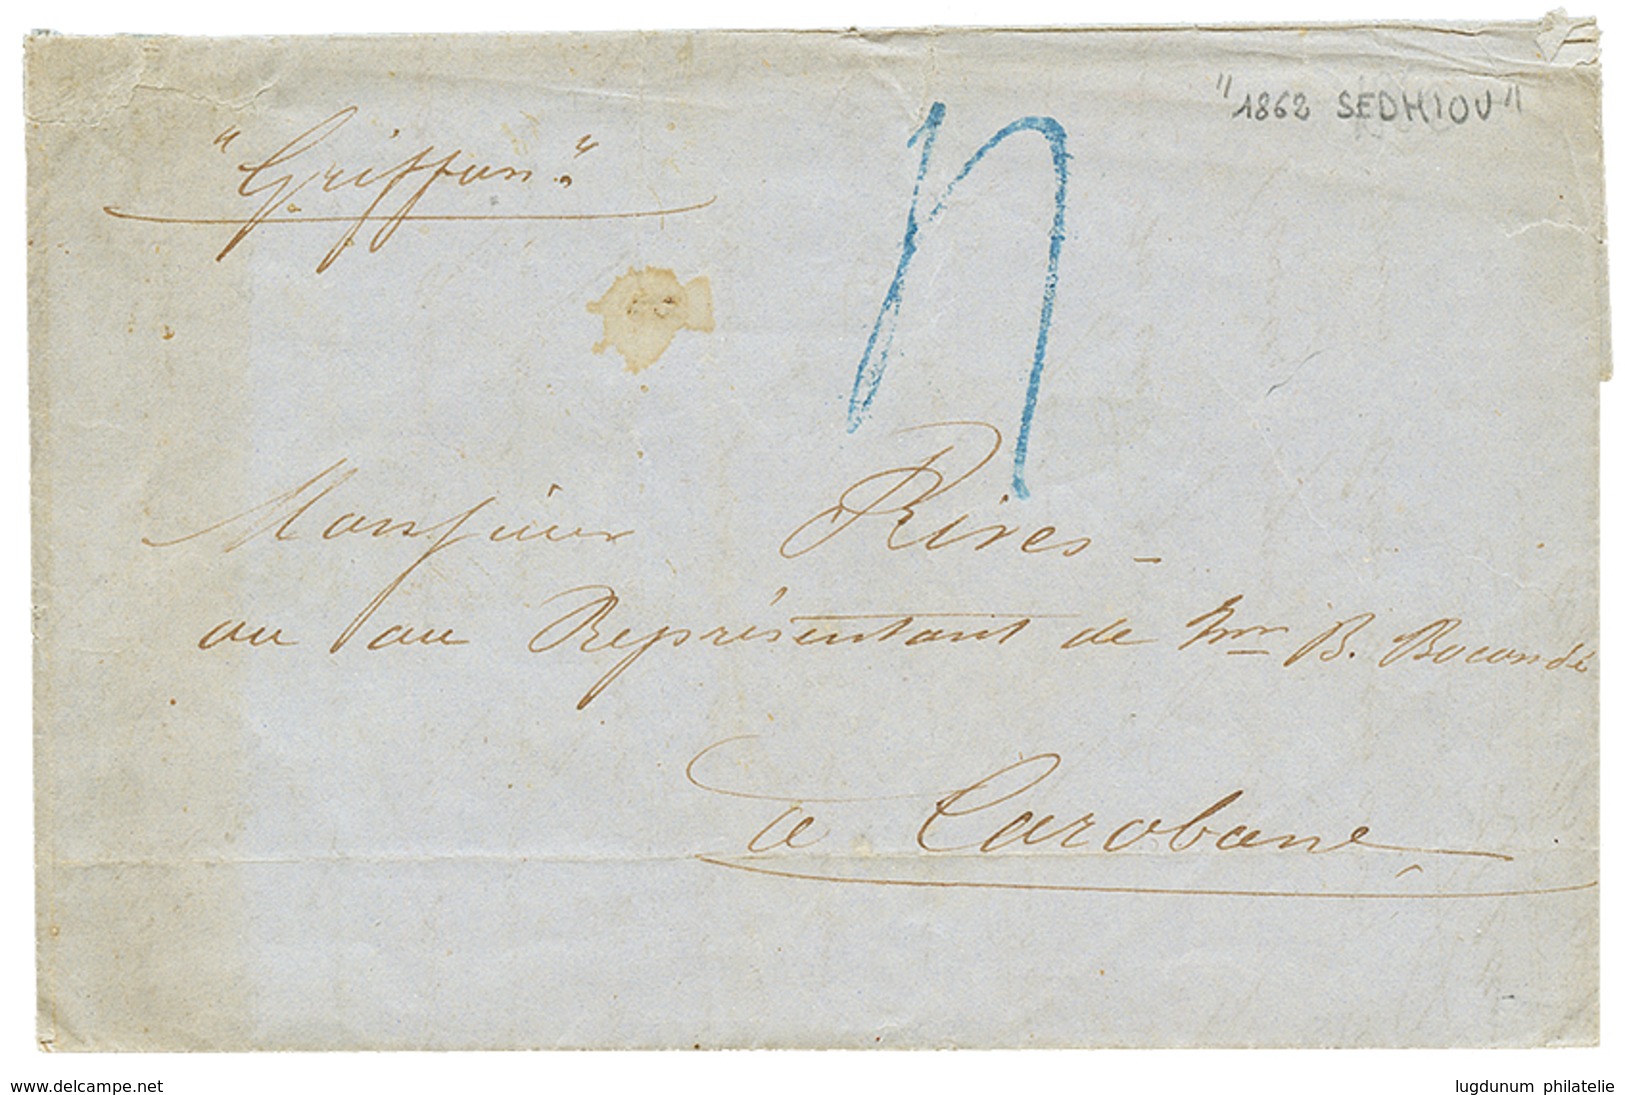 "1862 SEDHIOU"
"Griffon."
Monsieur Rives -
ou au Représentant de Mr B. Bocandé
à Carabane
www.delcampe.net
lugdunum philatelie